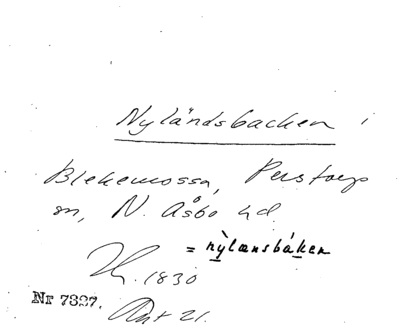 Nyländsbacken i
Blekemossa, Perstorps
sn, N. Åsbo hd.
= nỳlænsbáken
1830
Nr 7327.
21.